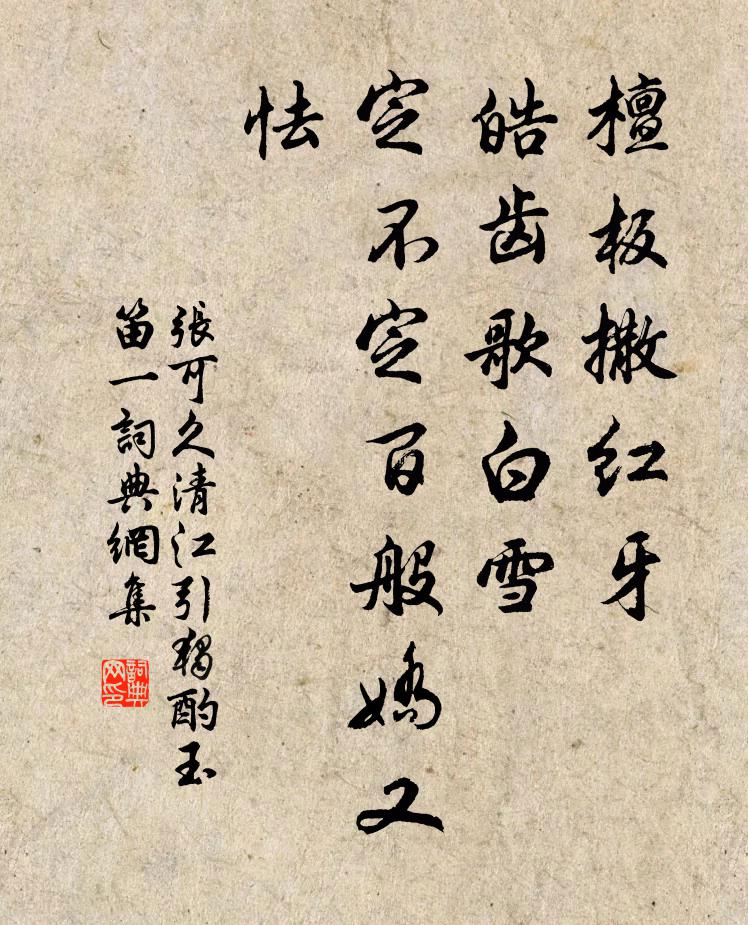 檀板撒红牙
皓齿歌白雪
定不定百般嬌又
怯
張可久清江引獨酌玉
笛一詞典網集
詞典
网印